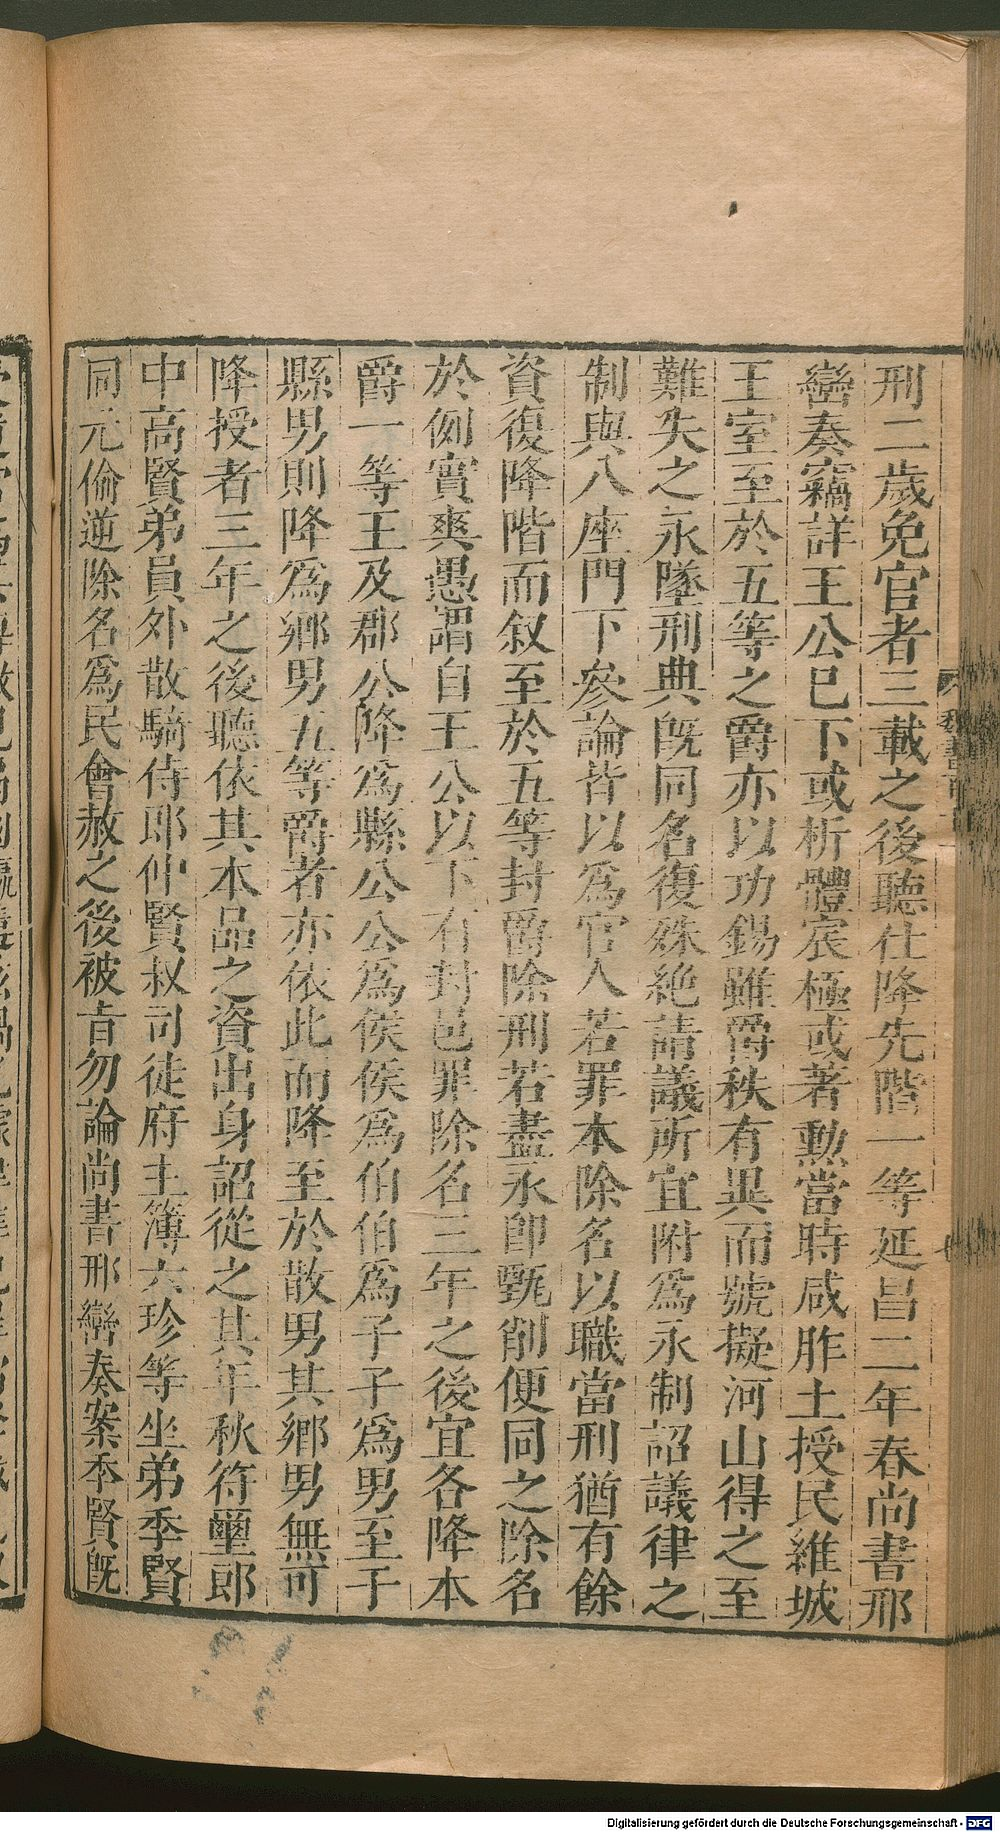 刑二歲免官者三載之後聽仕降先階一等延昌二年春尚書邢
巒奏竊詳王公已下或析體宸極或著勲當時咸胙土授民維城
王室至於五等之爵亦以功錫雖爵秩有異而號擬河山得之至
難失之永墜刑典旣同名復殊絶請議所宜附爲永制詔議律之
制與八座門下叅論皆以爲官人若罪本除名以職當刑猶有餘
資復降階而叙至於五等封爵除刑若盡永即甄削便同之除名
於例實爽愚謂自王公以下有封邑罪除名三年之後宜各降本
爵一等王及郡公降爲縣公公爲侯侯爲伯伯爲子子爲男至于
縣男則降爲鄉男五等爵者亦依此而降至於散男其鄉男無可
降授者三年之後聽依其本品之資出身詔從之其年秋符璽郎
中高賢弟員外散騎侍郎仲賢叔司徒府主簿六珍等坐弟季賢
同元愉逆除名爲民會赦之後被旨勿論尚書邢巒奏案季賢旣
Digitalisierung gefördert durch die Deutsche Forschungsgemeinschaft - DFG